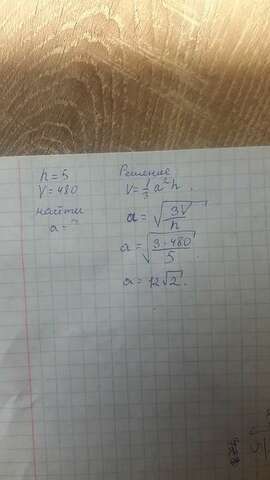 h=5
V=480
найти
a=?
Решение
V=1/3 a²h.
a=√(3V/h)
a=√(3·480/5).
a=12√2.